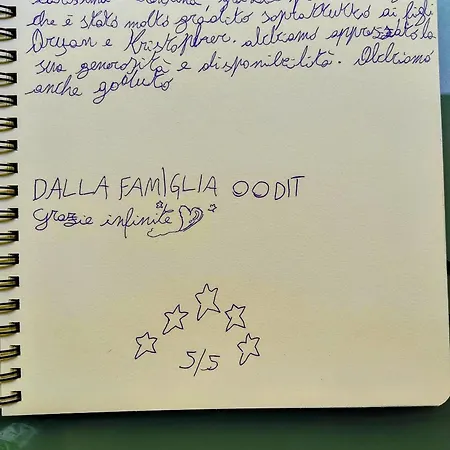 che è stato molto gradito soprattutto ai figli
Dryan e Kristopher. abbiamo apprezzato la
sua generosità e disponibilità. Abbiamo
anche goduto
DALLA FAMIGLIA OODIT
Grazie infinite
5/5